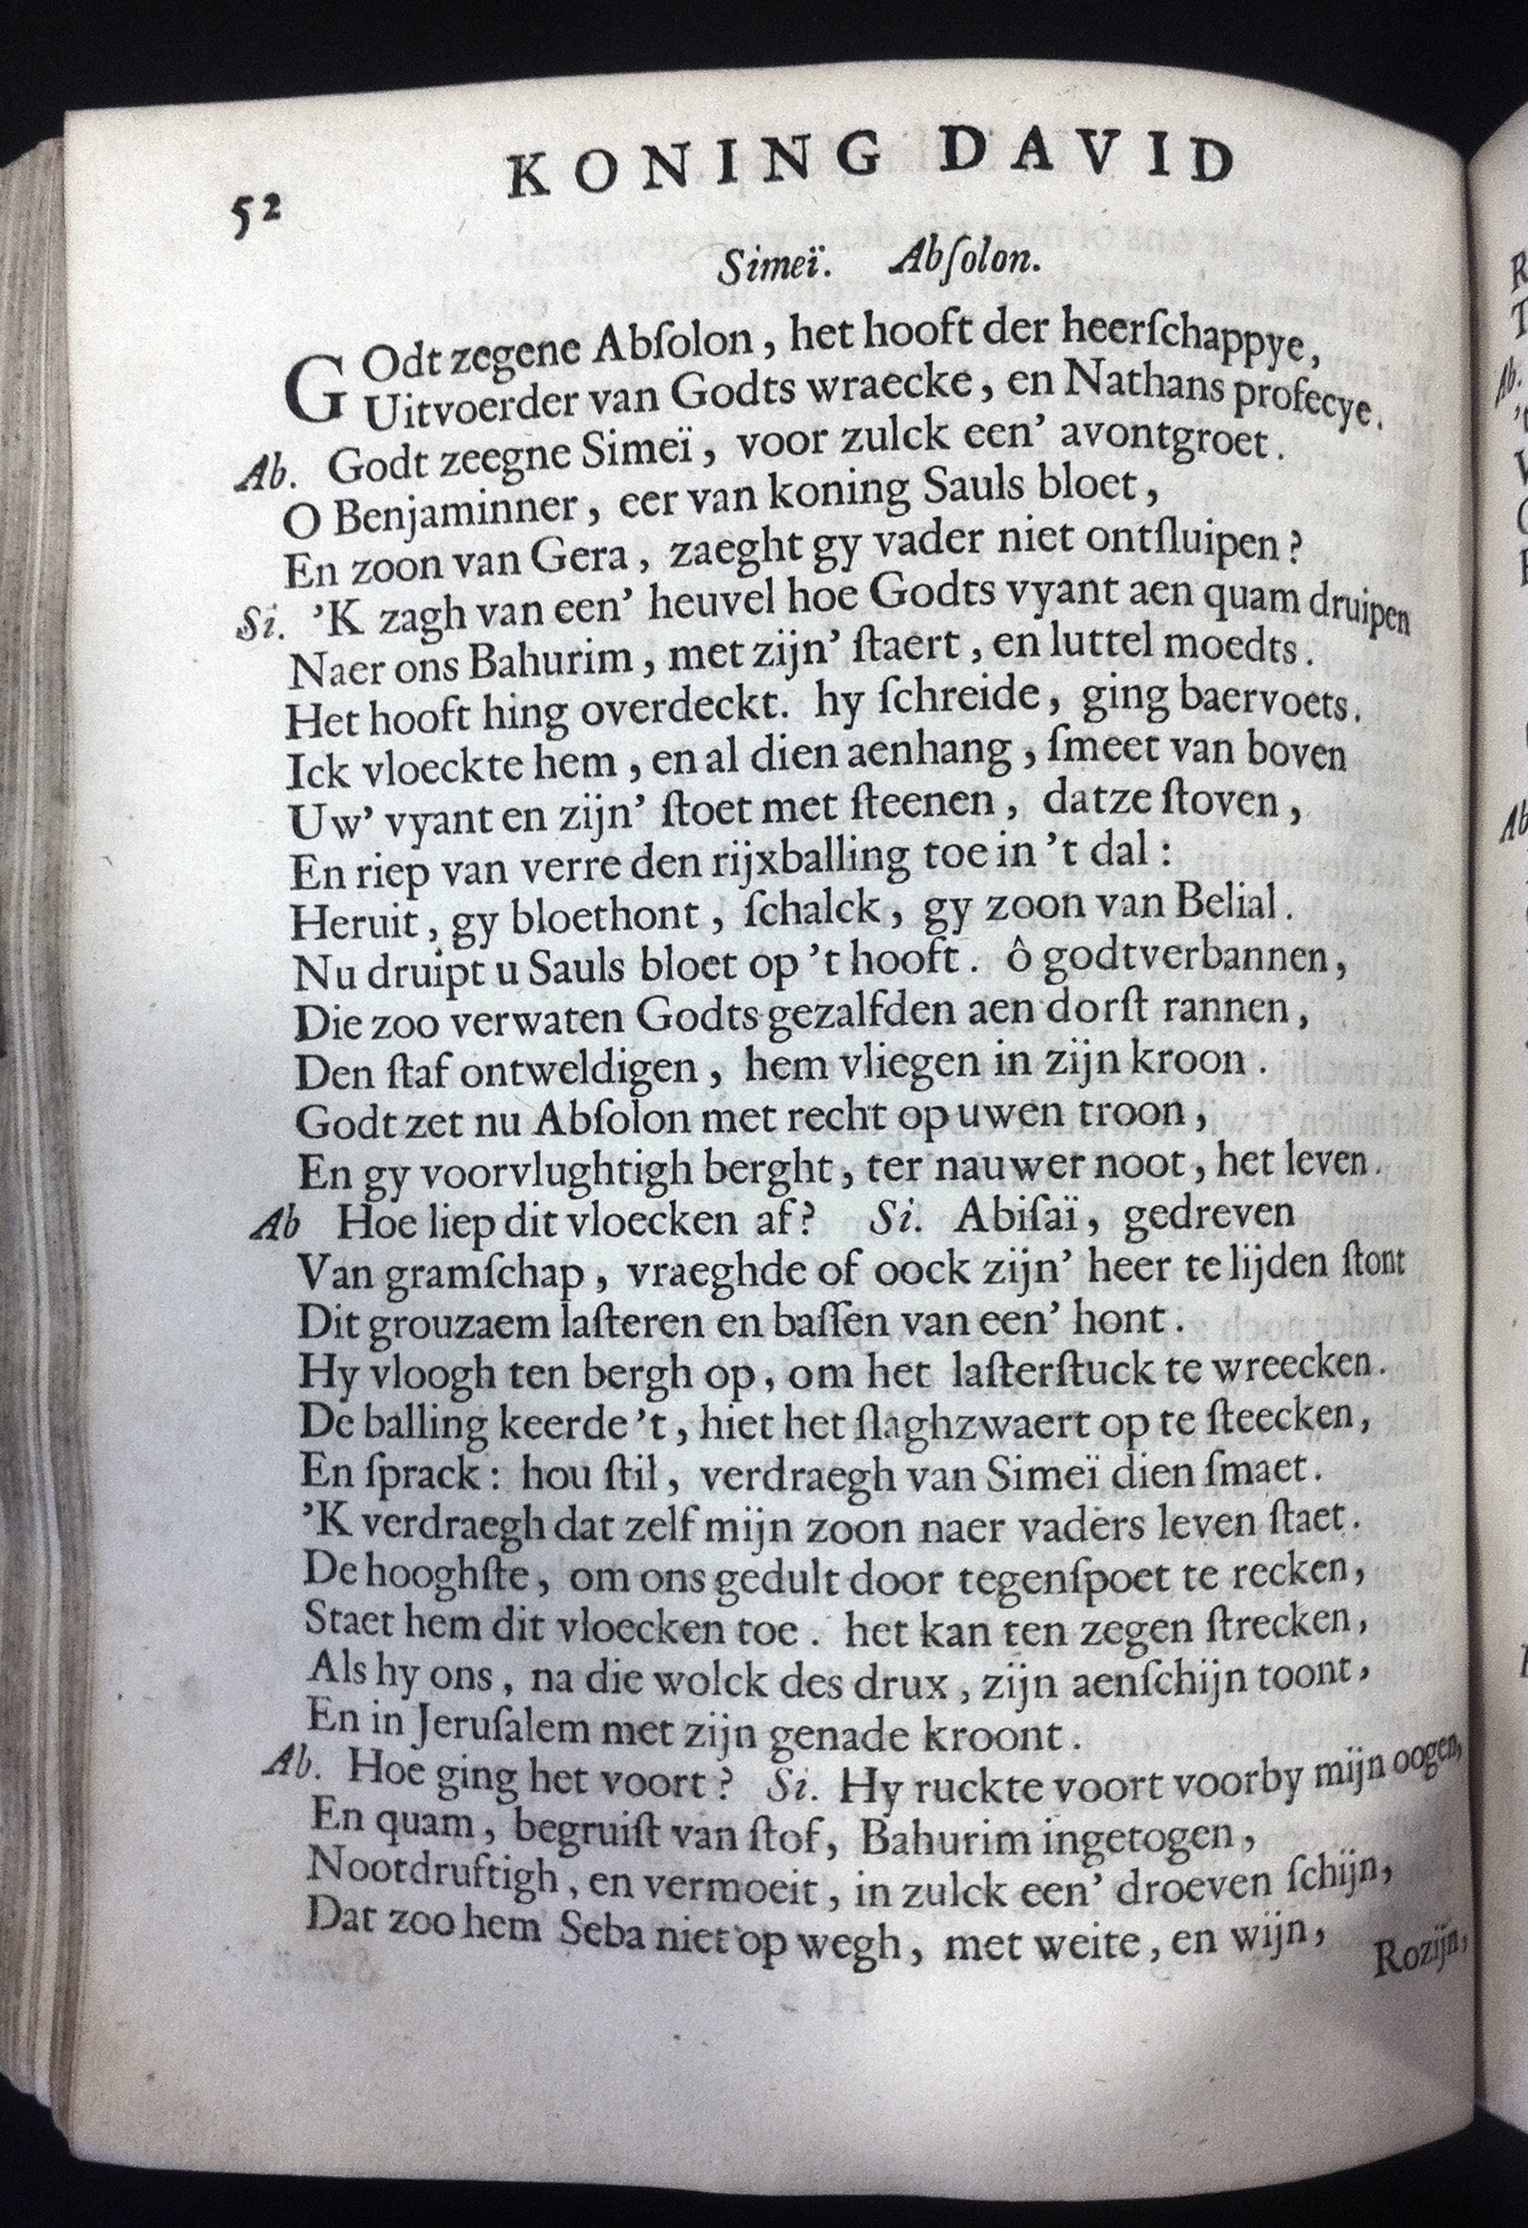 52
KONING DAVID
Simeï. Abſolon.
GOdt zegene Abſolon, het hooft der heerſchappye,
Uitvoerder van Godts wraecke, en Nathans profecye.
Ab. Godt zeegne Simeï, voor zulck een' avontgroet.
O Benjaminner, eer van koning Sauls bloet,
En zoon van Gera, zaeght gy vader niet ontſluipen?
Si. 'K zagh van een' heuvel hoe Godts vyant aen quam druipen
Naer ons Bahurim, met zijn' ſtaert, en luttel moedts.
Het hooft hing overdeckt. hy ſchreide, ging baervoets.
Ick vloeckte hem, en al dien aenhang, ſmeet van boven
Uw' vyant en zijn' ſtoet met ſteenen, datze ſtoven,
En riep van verre den rijxballing toe in 't dal:
Heruit, gy bloethont, ſchalck, gy zoon van Belial.
Nu druipt u Sauls bloet op 't hooft. ô godtverbannen,
Die zoo verwaten Godts gezalfden aen dorſt rannen,
Den ſtaf ontweldigen, hem vliegen in zijn kroon.
Godt zet nu Abſolon met recht op uwen troon,
En gy voorvlughtigh berght, ter nauwer noot, het leven.
Ab Hoe liep dit vloecken af? Si. Abiſaï, gedreven
Van gramſchap, vraeghde of oock zijn' heer te lijden ſtont
Dit grouzaem laſteren en baſſen van een' hont.
Hy vloogh ten bergh op, om het laſterſtuck te wreecken.
De balling keerde 't, hiet het ſlaghzwaert op te ſteecken,
En ſprack: hou ſtil, verdraegh van Simeï dien ſmaet.
'K verdraegh dat zelf mijn zoon naer vaders leven ſtaet.
De hooghſte, om ons gedult door tegenſpoet te recken,
Staet hem dit vloecken toe. het kan ten zegen ſtrecken,
Als hy ons, na die wolck des drux, zijn aenſchijn toont,
En in Jeruſalem met zijn genade kroont.
Ab. Hoe ging het voort? Si. Hy ruckte voort voorby mijn oogen,
En quam, begruiſt van ſtof, Bahurim ingetogen,
Nootdruftigh, en vermoeit, in zulck een' droeven ſchijn,
Dat zoo hem Seba niet op wegh, met weite, en wijn,
Rozijn,